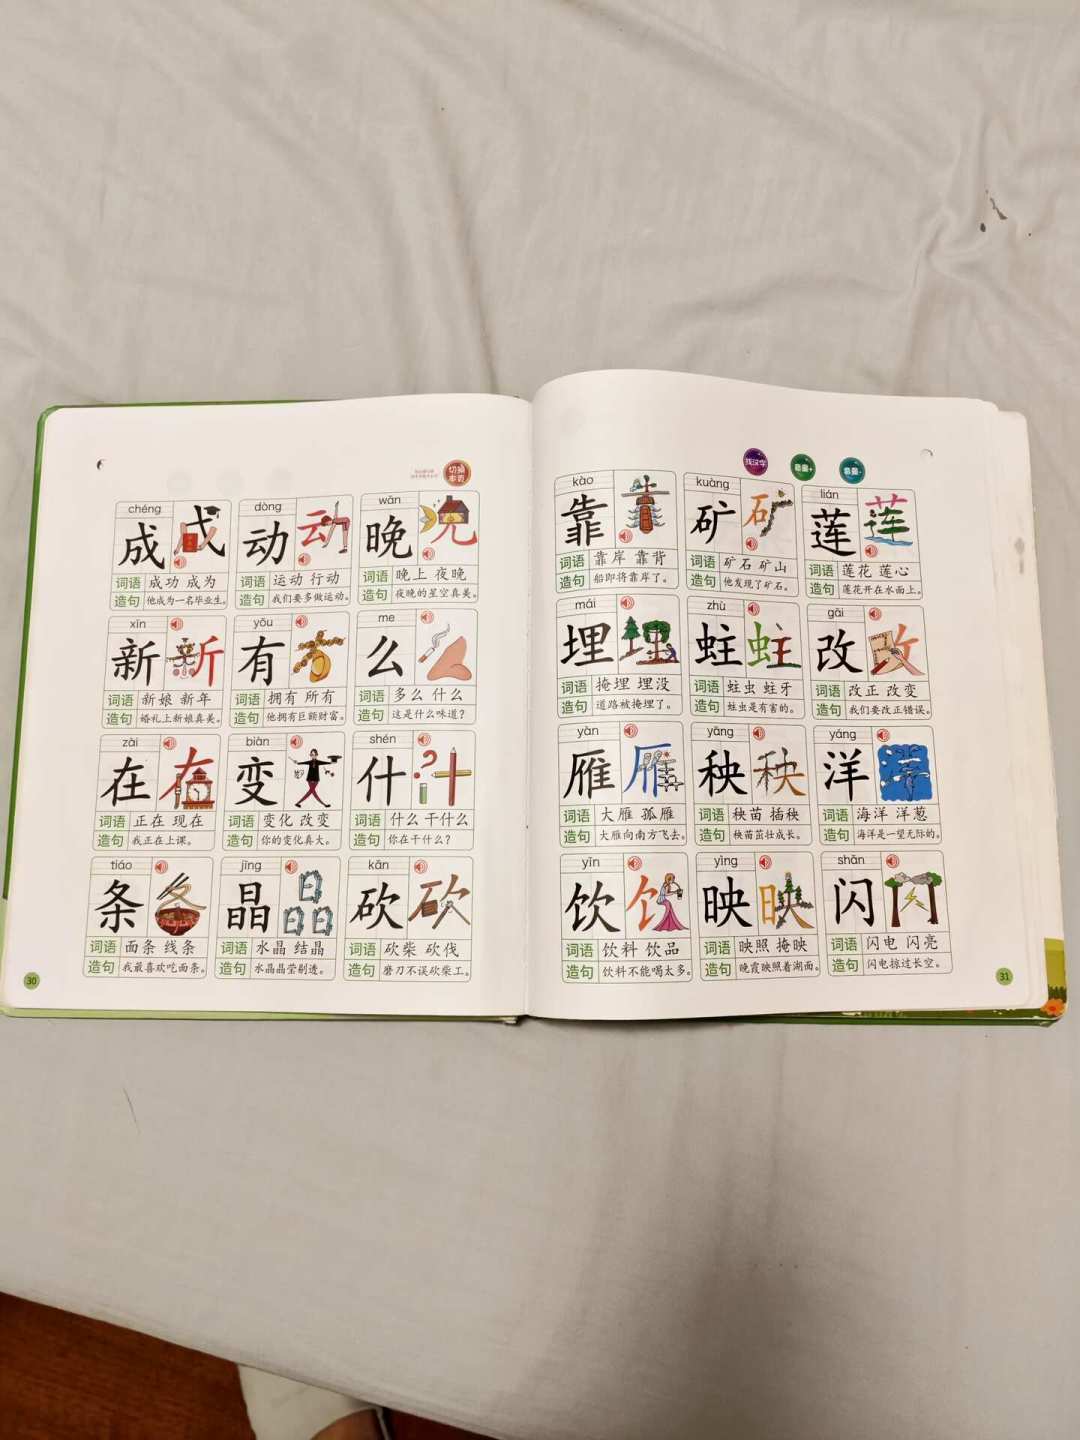 切换
本页
chéng
成
词语 成功 成为
造句 他成为一名毕业生。
dòng
动
词语 运动 行动
造句 我们要多做运动。
wǎn
晚
词语 晚上 夜晚
造句 夜晚的星空真美。
xīn
新
词语 新娘 新年
造句 婚礼上新娘真美。
yǒu
有
词语 拥有 所有
造句 他拥有巨额财富。
me
么
词语 多么 什么
造句 这是什么味道？
zài
在
词语 正在 现在
造句 我正在上课。
biàn
变
词语 变化 改变
造句 你的变化真大。
shén
什
词语 什么 干什么
造句 你在干什么？
tiáo
条
词语 面条 线条
造句 我最喜欢吃面条。
jīng
晶
词语 水晶 结晶
造句 水晶晶莹剔透。
kǎn
砍
词语 砍柴 砍伐
造句 磨刀不误砍柴工。
30
找汉字
音量+
音量-
kào
靠
词语 靠岸 靠背
造句 船即将靠岸了。
kuàng
矿
词语 矿石 矿山
造句 他发现了矿石。
lián
莲
词语 莲花 莲心
造句 莲花开在水面上。
mái
埋
词语 掩埋 埋没
造句 道路被掩埋了。
zhù
蛀
词语 蛀虫 蛀牙
造句 蛀虫是有害的。
gǎi
改
词语 改正 改变
造句 我们要改正错误。
yàn
雁
词语 大雁 孤雁
造句 大雁向南方飞去。
yāng
秧
词语 秧苗 插秧
造句 秧苗茁壮成长。
yáng
洋
词语 海洋 洋葱
造句 海洋是一望无际的。
yǐn
饮
词语 饮料 饮品
造句 饮料不能喝太多。
yìng
映
词语 映照 掩映
造句 晚霞映照着湖面。
shǎn
闪
词语 闪电 闪亮
造句 闪电掠过长空。
31